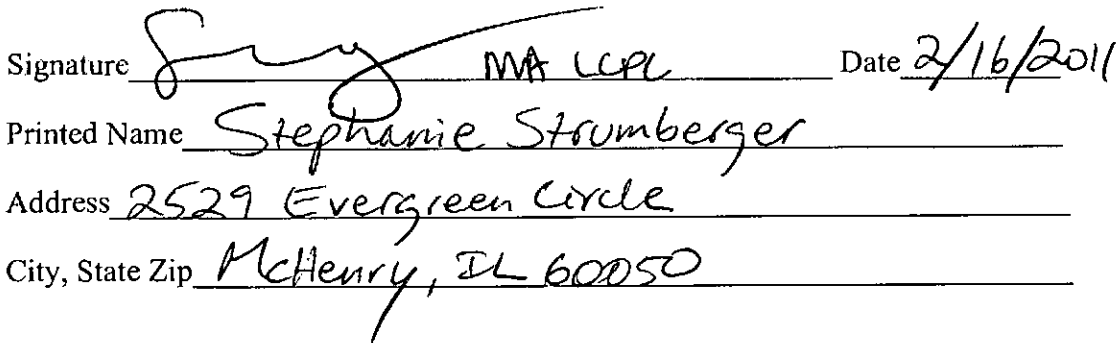 Signature MA LCPC Date 2/16/2011
Printed Name Stephanie Strumberger
Address 2529 Evergreen Circle
City, State Zip McHenry, IL 60050